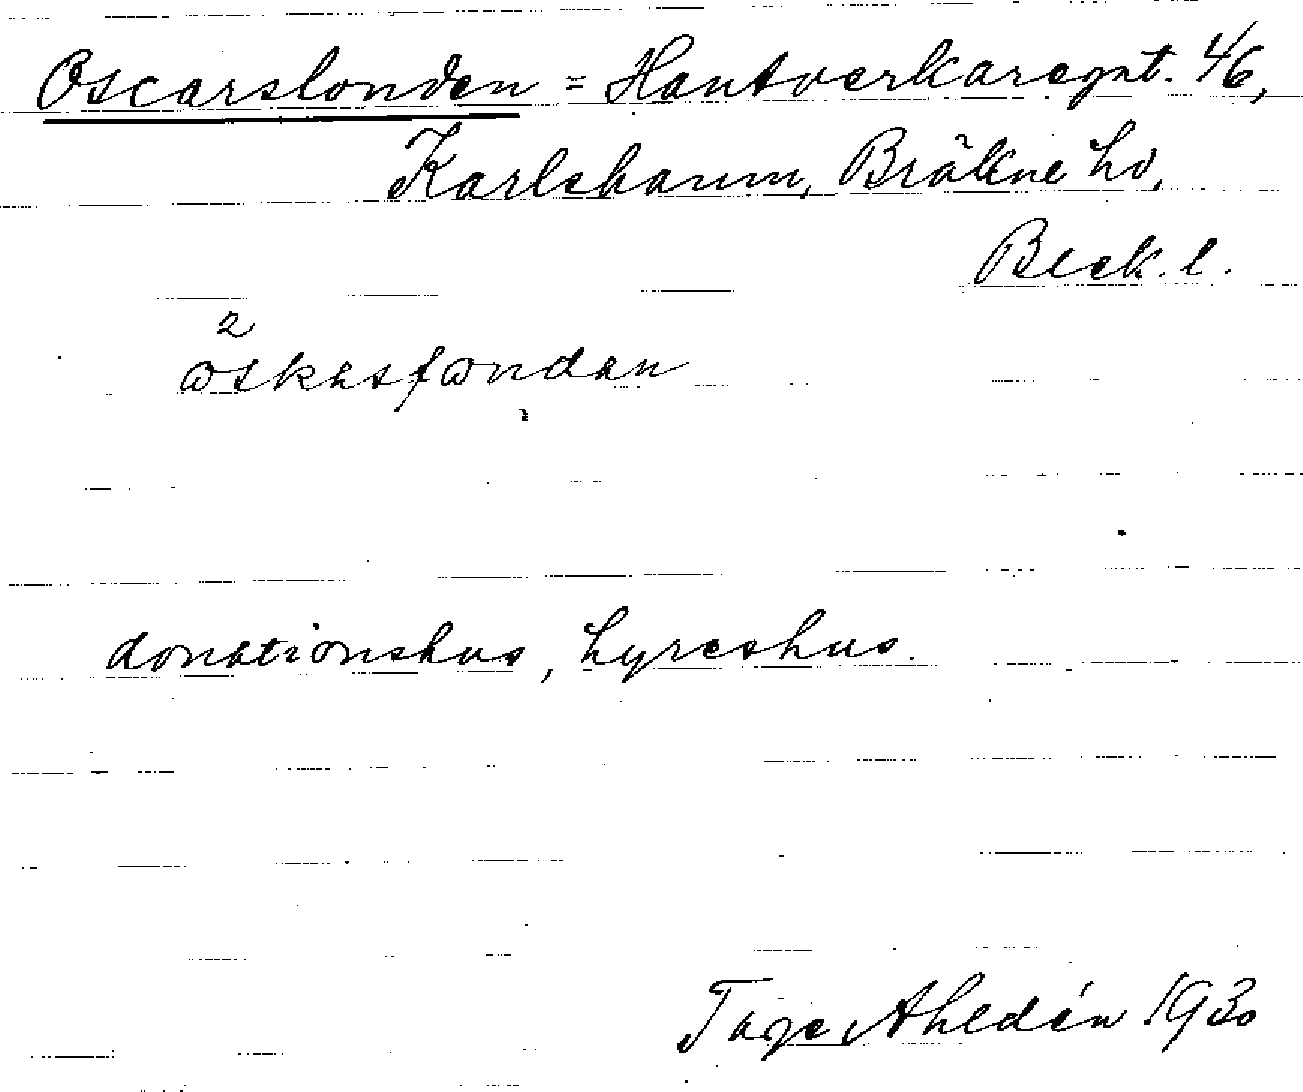 Oscarsfonden = Hantverkaregat. 46,
Karlshamn, Bräkne hd,
Blek. l.
2
ɷskasfɷndan
donationshus, hyreshus.
Tage Ahldén 1930